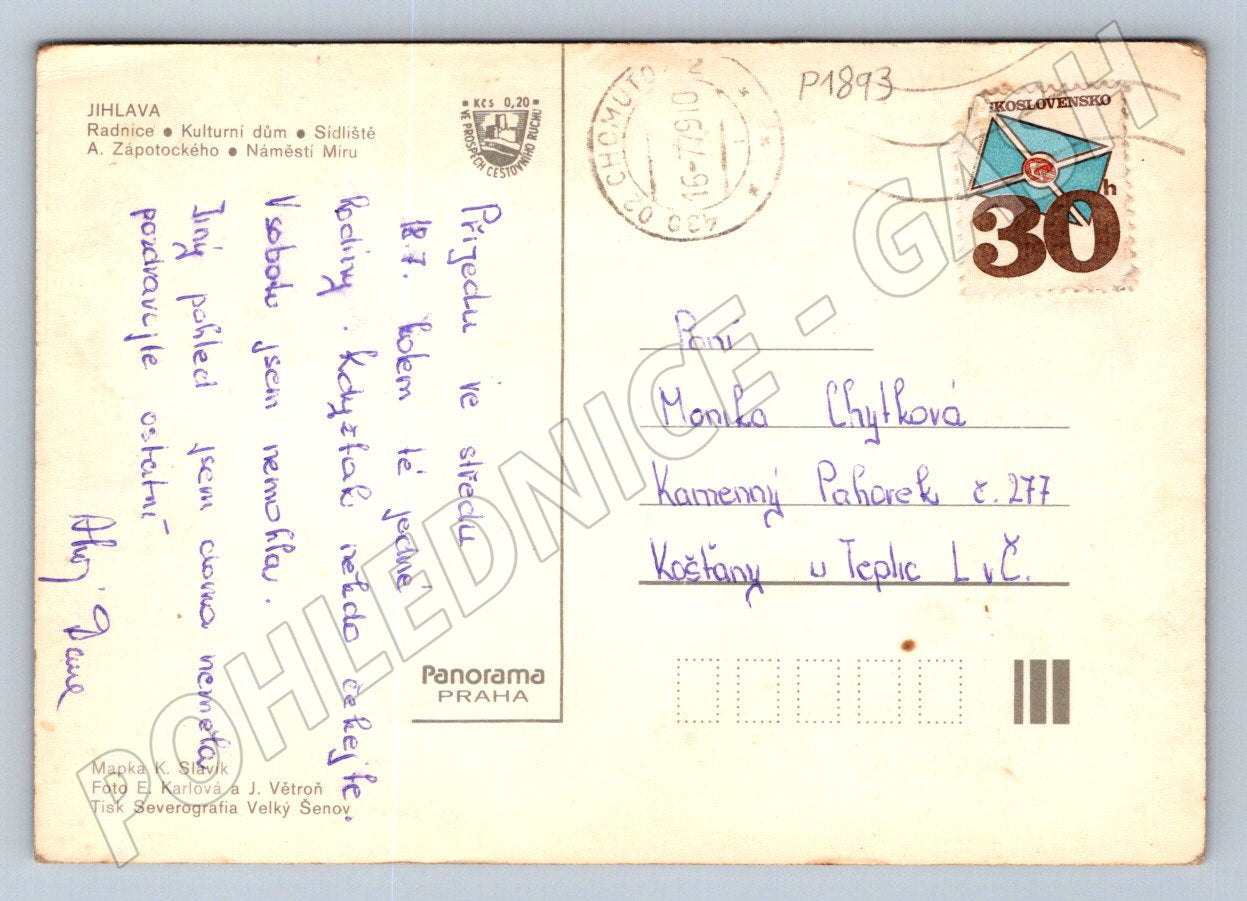 JIHLAVA
Radnice • Kulturní dům • Sídliště
A. Zápotockého • Náměstí Míru
• Kčs 0,20 •
VE PROSPĚCH CESTOVNÍHO RUCHU
Přijedu ve středu
18.7. kolem té jedné
hodiny. Kdyžtak někdo čekejte.
V sobotu jsem nemohla.
Jiný pohled jsem doma neměla
pozdravujte ostatní
Ahoj
Panorama
PRAHA
Mapka K. Slavík
Foto E. Karlová a J. Větroň
Tisk Severografia Velký Šenov
02 CHOMUTOV 2
16.-7.79.10
P1893
KOSLOVENSKO
30h
Paní
Monika Chytková
Kamenný Pahorek č. 277
Košťany u Teplic L v Č.
POHLEDNICE - GACH